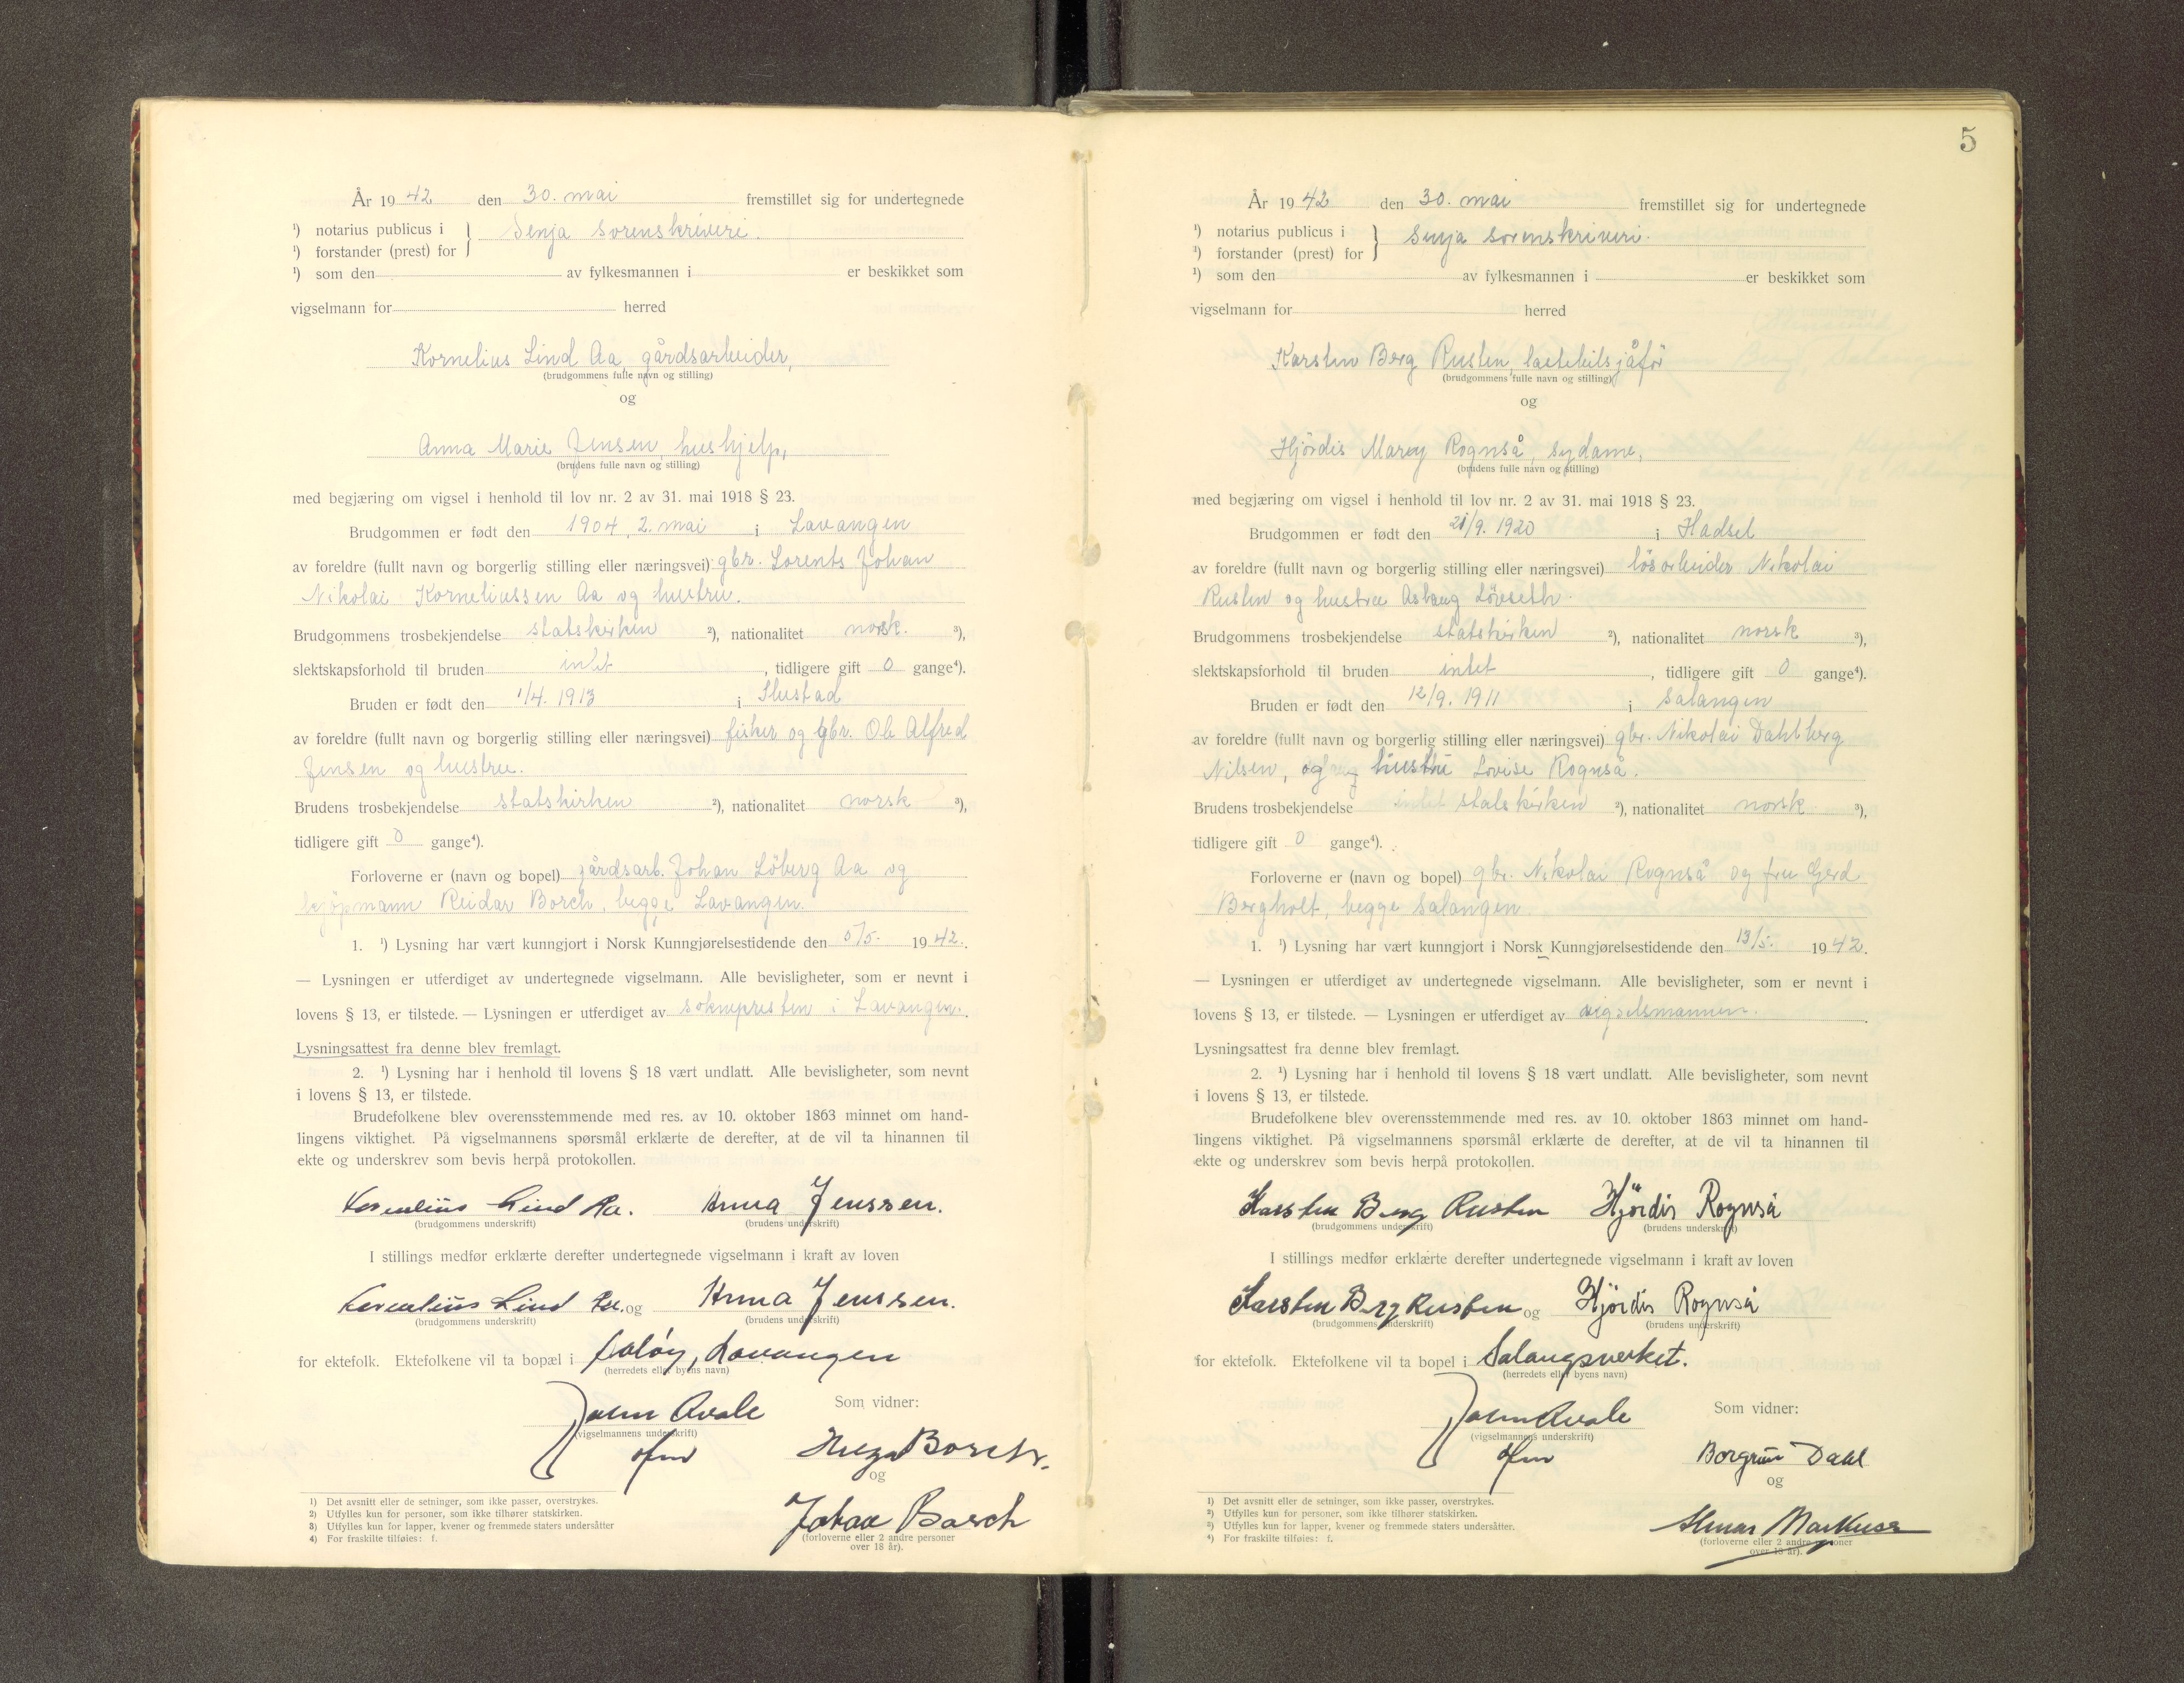 År 1942 den 30. mai fremstillet sig for undertegnede
¹) notarius publicus i } Senja sorenskriveri.
¹) forstander (prest) for
¹) som den av fylkesmannen i er beskikket som
vigselmann for herred
Kornelius Lind Aa, gårdsarbeider,
(brudgommens fulle navn og stilling)
og
Anna Marie Jensen, hushjelp,
(brudens fulle navn og stilling)
med begjæring om vigsel i henhold til lov nr. 2 av 31. mai 1918 § 23.
Brudgommen er født den 1904, 2. mai i Lavangen
av foreldre (fullt navn og borgerlig stilling eller næringsvei) gbr. Lorents Johan
Nikolai Korneliussen Aa og hustru.
Brudgommens trosbekjendelse statskirken ²), nationalitet norsk. ³),
slektskapsforhold til bruden intet, tidligere gift 0 gange⁴).
Bruden er født den 1/4. 1913 i Hustad
av foreldre (fullt navn og borgerlig stilling eller næringsvei) fisker og gbr. Ole Alfred
Jensen og hustru.
Brudens trosbekjendelse statskirken ²), nationalitet norsk ³),
tidligere gift 0 gange⁴).
Forloverne er (navn og bopel) gårdsarb. Johan Löberg Aa og
kjöpmann Reidar Borch, begge Lavangen.
1. ¹) Lysning har vært kunngjort i Norsk Kunngjørelsestidende den 5/5. 1942.
— Lysningen er utferdiget av undertegnede vigselmann. Alle bevisligheter, som er nevnt i
lovens § 13, er tilstede. — Lysningen er utferdiget av soknepresten i Lavangen.
Lysningsattest fra denne blev fremlagt.
2. ¹) Lysning har i henhold til lovens § 18 vært undlatt. Alle bevisligheter, som nevnt
i lovens § 13, er tilstede.
Brudefolkene blev overensstemmende med res. av 10. oktober 1863 minnet om hand-
lingens viktighet. På vigselmannens spørsmål erklærte de derefter, at de vil ta hinannen til
ekte og underskrev som bevis herpå protokollen.
Kornelius Lind Aa. Anna Jenssen.
(brudgommens underskrift) (brudens underskrift)
I stillings medfør erklærte derefter undertegnede vigselmann i kraft av loven
Kornelius Lind Aa. og Anna Jenssen.
(brudgommens underskrift) (brudens underskrift)
for ektefolk. Ektefolkene vil ta bopæl i Lavangen
(herredets eller byens navn)
Som vidner:
(vigselmannens underskrift)
Borch.
og
Johan Borch
(forloverne eller 2 andre personer
over 18 år).
1) Det avsnitt eller de setninger, som ikke passer, overstrykes.
2) Utfylles kun for personer, som ikke tilhører statskirken.
3) Utfylles kun for lapper, kvener og fremmede staters undersåtter
4) For fraskilte tilføies: f.
5
År 1942 den 30. mai fremstillet sig for undertegnede
¹) notarius publicus i } Senja sorenskriveri.
¹) forstander (prest) for
¹) som den av fylkesmannen i er beskikket som
vigselmann for herred
Karsten Berg Rusten, lastebilsjåför
(brudgommens fulle navn og stilling)
og
Hjördis Marey Rognså, sydame,
(brudens fulle navn og stilling)
med begjæring om vigsel i henhold til lov nr. 2 av 31. mai 1918 § 23.
Brudgommen er født den 21/9. 1920 i Hadsel
av foreldre (fullt navn og borgerlig stilling eller næringsvei) lösarbeider Nikolai
Rusten og hustru Aslaug Lövseth.
Brudgommens trosbekjendelse statskirken ²), nationalitet norsk ³),
slektskapsforhold til bruden intet, tidligere gift 0 gange⁴).
Bruden er født den 12/9. 1911 i Salangen
av foreldre (fullt navn og borgerlig stilling eller næringsvei) gbr. Nikolai Dahlberg
Nilsen, og hustru Lovise Rognså.
Brudens trosbekjendelse intet statskirken ²), nationalitet norsk ³),
tidligere gift 0 gange⁴).
Forloverne er (navn og bopel) gbr. Nikolai Rognså og fru Gerd
Bergholt, begge Salangen.
1. ¹) Lysning har vært kunngjort i Norsk Kunngjørelsestidende den 13/5. 1942.
— Lysningen er utferdiget av undertegnede vigselmann. Alle bevisligheter, som er nevnt i
lovens § 13, er tilstede. — Lysningen er utferdiget av vigselsmannen.
Lysningsattest fra denne blev fremlagt.
2. ¹) Lysning har i henhold til lovens § 18 vært undlatt. Alle bevisligheter, som nevnt
i lovens § 13, er tilstede.
Brudefolkene blev overensstemmende med res. av 10. oktober 1863 minnet om hand-
lingens viktighet. På vigselmannens spørsmål erklærte de derefter, at de vil ta hinannen til
ekte og underskrev som bevis herpå protokollen.
Karsten Berg Rusten Hjördis Rognså
(brudgommens underskrift) (brudens underskrift)
I stillings medfør erklærte derefter undertegnede vigselmann i kraft av loven
Karsten Berg Rusten og Hjördis Rognså
(brudgommens underskrift) (brudens underskrift)
for ektefolk. Ektefolkene vil ta bopel i Salangsverket.
(herredets eller byens navn)
Som vidner:
(vigselmannens underskrift)
Borgrun Dahl
og
(forloverne eller 2 andre personer
over 18 år).
¹) Det avsnitt eller de setninger, som ikke passer, overstrykes.
²) Utfylles kun for personer, som ikke tilhører statskirken.
³) Utfylles kun for lapper, kvener og fremmede staters undersåtter.
⁴) For fraskilte tilføies: f.